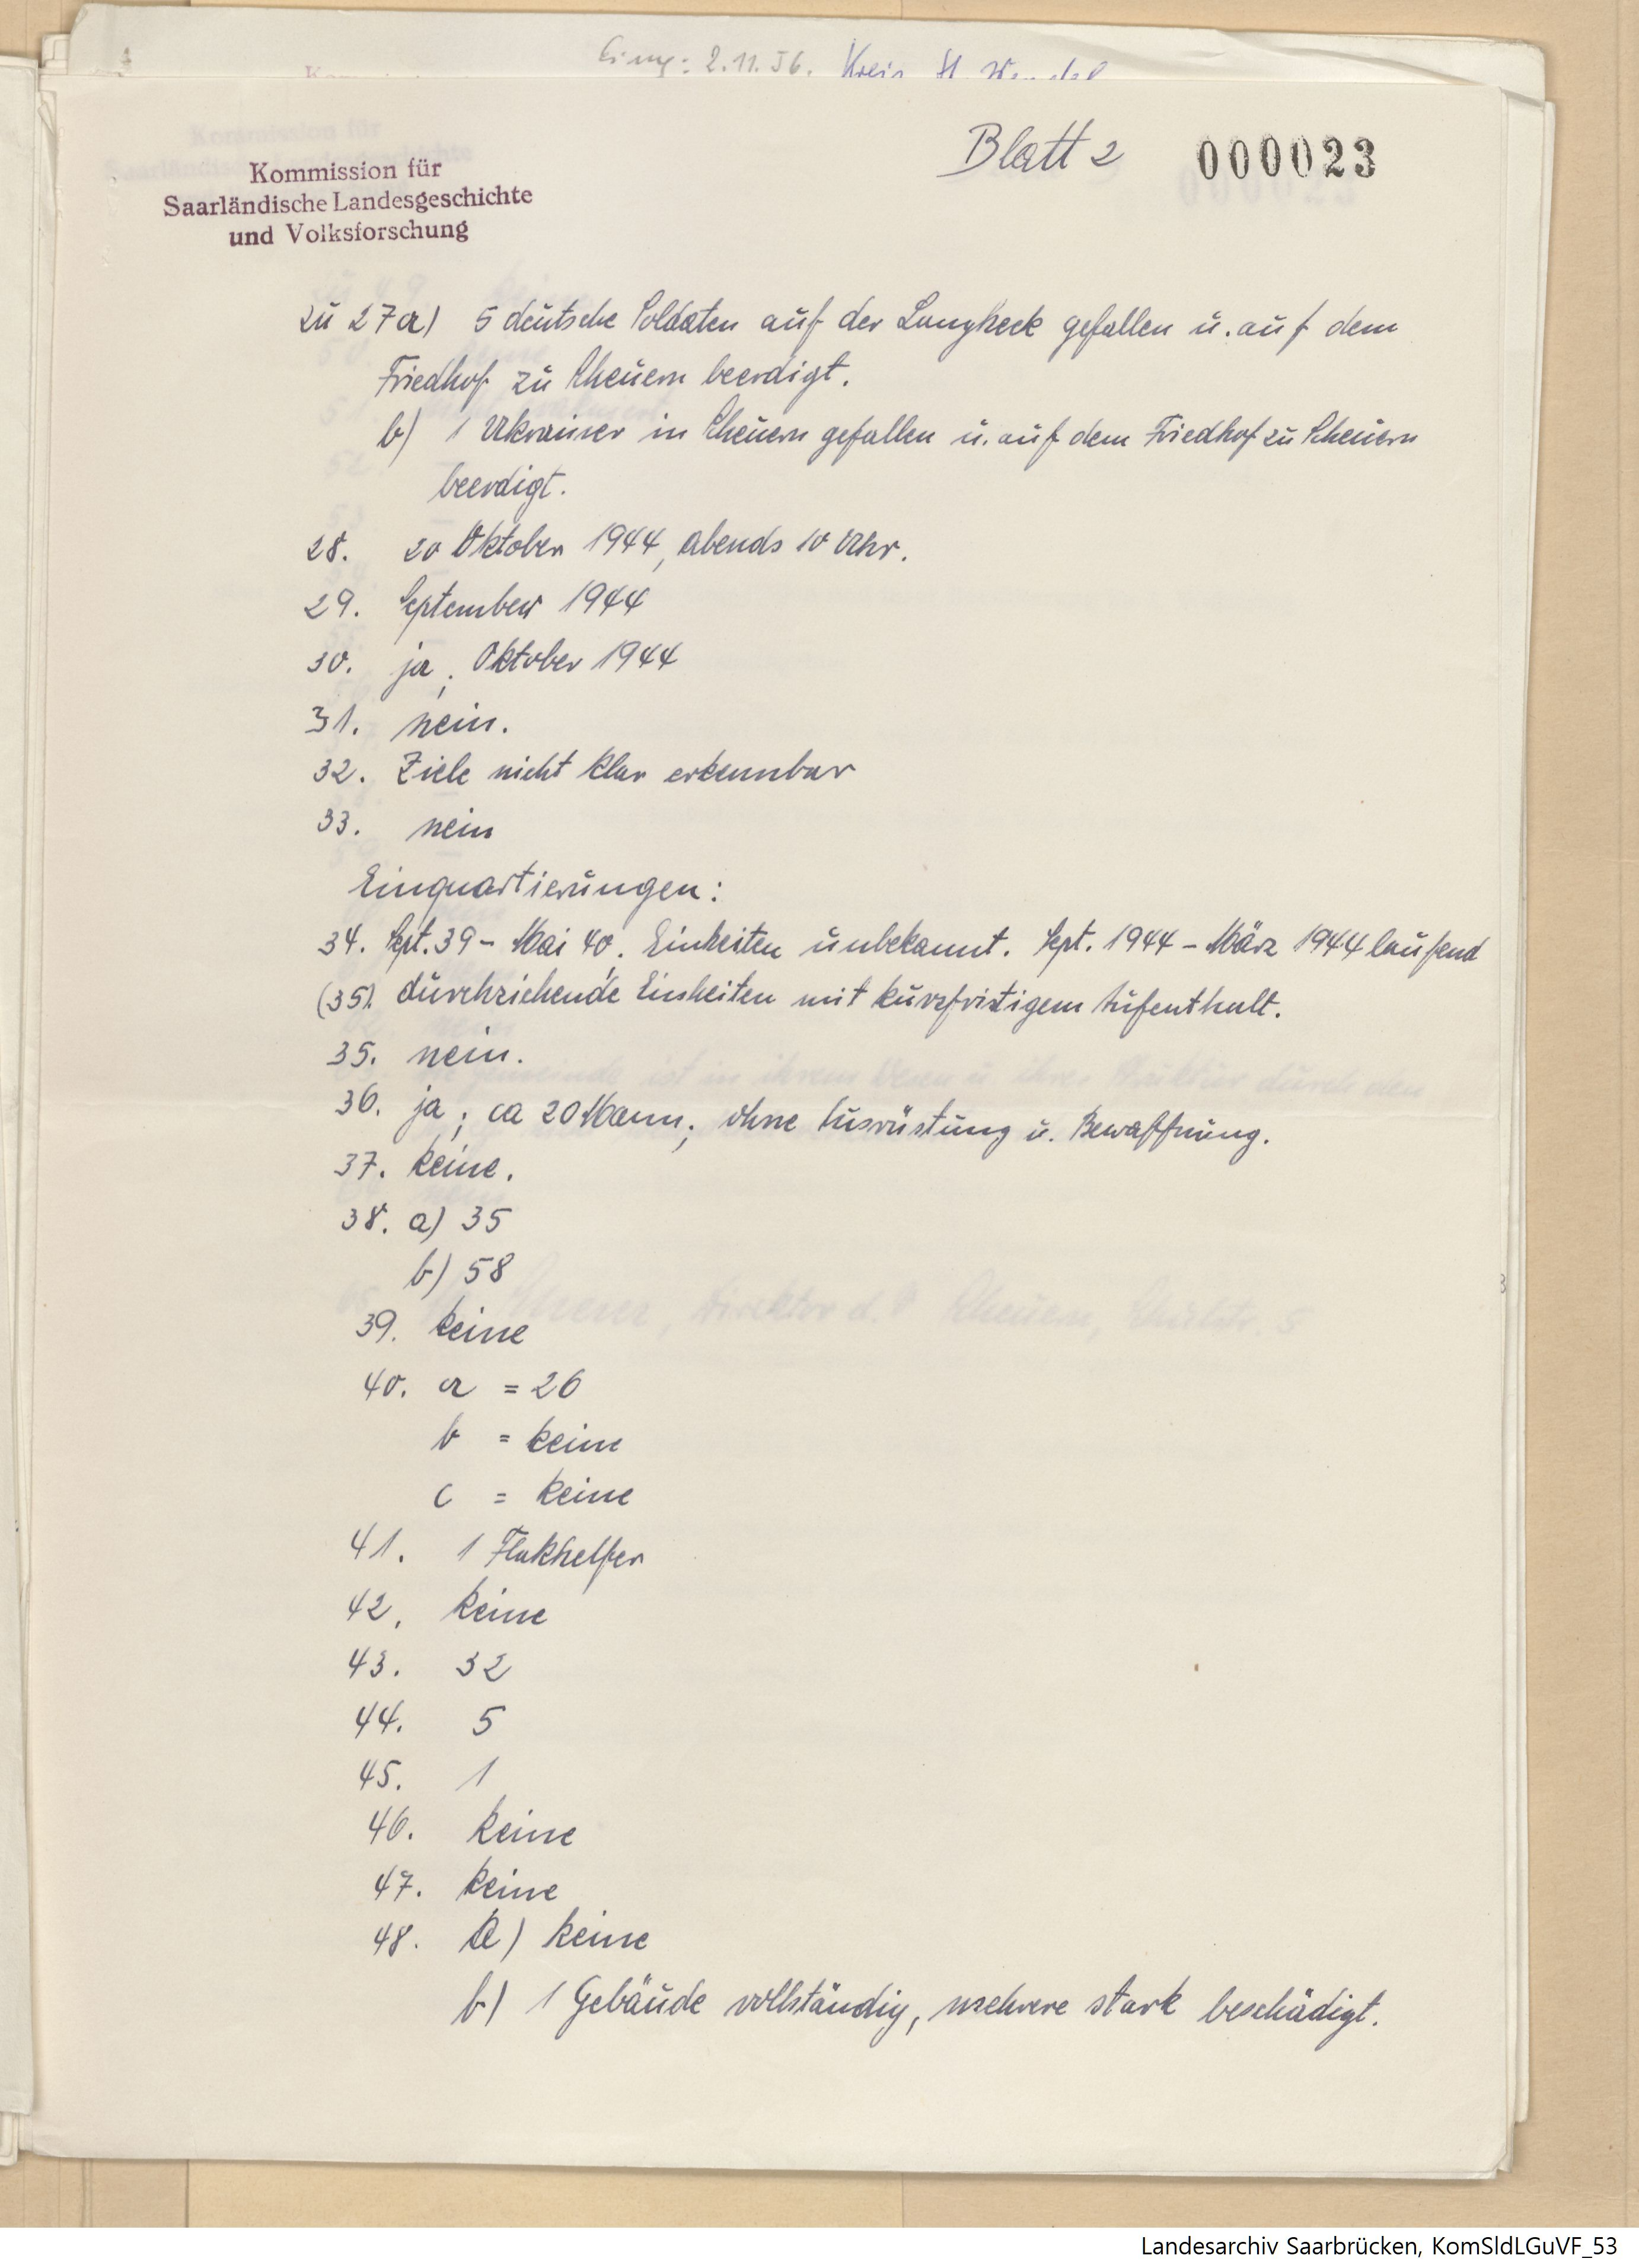 Eing: 2.11.56. Kreis St. Wendel
Blatt 2 000023
Kommission für
Saarländische Landesgeschichte
und Volksforschung
zu 27a) 5 deutsche Soldaten auf der Langheck gefallen u. auf dem
Friedhof zu Scheuern beerdigt.
b) 1 Ukrainer in Scheuern gefallen u. auf dem Friedhof zu Scheuern
beerdigt.
28. 20 Oktober 1944, abends 10 Uhr.
29. September 1944
30. ja; Oktober 1944
31. nein.
32. Ziele nicht klar erkennbar
33. nein
Einquartierungen:
34. Sept. 39 - Mai 40; Einheiten unbekannt. Sept. 1944 - März 1944 laufend
(35). durchziehende Einheiten mit kurzfristigem Aufenthalt.
35. nein.
36. ja; ca 20 Mann; ohne Ausrüstung u. Bewaffnung.
37. keine.
38. a) 35
b) 58
39. keine
40. a = 26
b = keine
c = keine
41. 1 Flakhelfer
42. keine
43. 32
44. 5
45. 1
46. keine
47. keine
48. a) keine
b) 1 Gebäude vollständig, mehrere stark beschädigt.
Landesarchiv Saarbrücken, KomSldLGuVF_53